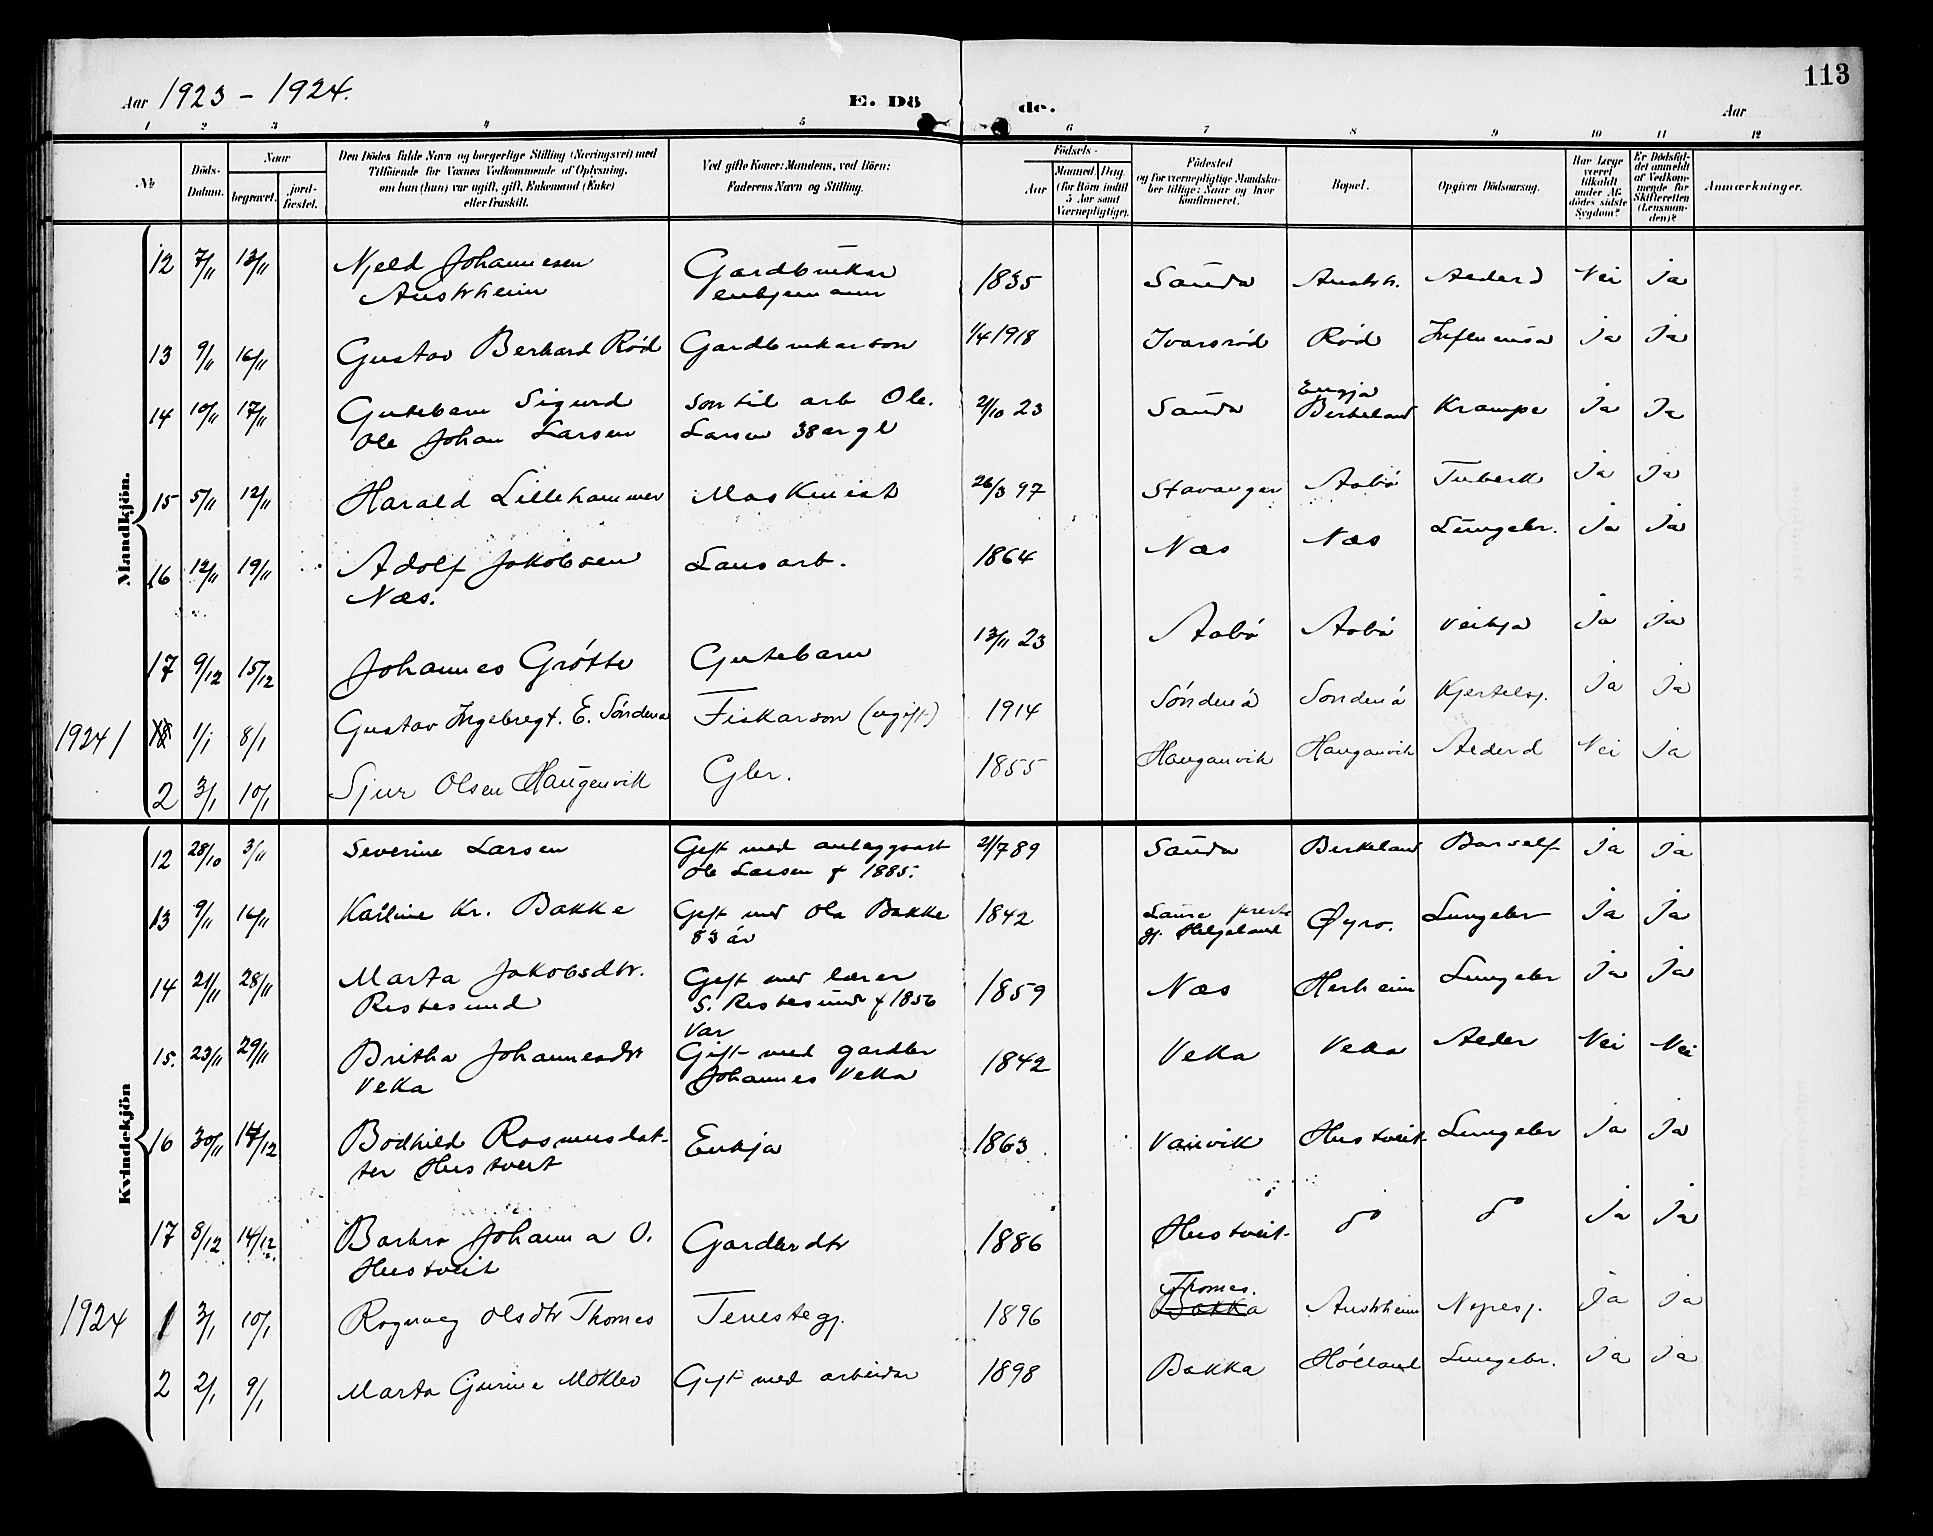 113
Aar 1923 - 1924.
E. Dö de.
Aar
1 2 3 4 5 6 7 8 9 10 11 12
No
Döds-Datum.
Naar
begravet.
jord-fæstet.
Den Dödes fulde Navn og borgerlige Stilling (Næringsvei) med
Tilföiende for Voxnes Vedkommende af Oplysning,
om han (hun) var ugift, gift, Enkemand (Enke)
eller fraskilt.
Ved gifte Koner: Mandens, ved Börn:
Faderens Navn og Stilling.
Födsels-
Aar
Maaned Dag
(for Börn indtil
5 Aar samt
Værnepligtige).
Födested
og for værnepligtige Mandska-
ber tillige: Naar og hvor
Konfirmeret.
Bopæl.
Opgiven Dödsaarsag.
Har Læge
været
tilkaldt
under Af-
dödes sidste
Sygdom?
Er Dödsfal-
det anmeldt
af Vedkom-
mende for
Skifteretten
(Lensman-
den)?
Anmærkninger.
Mandkjön.
12 7/11 13/11 Njeld Johannesen Austrheim Gardbrukar enkjemann 1835 Sauda Austrh. Alderd Nei Ja
13 9/11 16/11 Gustav Berhard Rød Gardbrukarson 1/4 1918 Ivarsrød Rød Influensa Ja Ja
14 10/11 17/11 Gutebarn Sigurd Ole Johan Larsen son til arb Ole. Larsen 38 år gl 2/10 23 Sauda Engja Berkeland Krampe Ja Ja
15 5/11 12/11 Harald Lillehammer Maskinist 26/3 97 Stavanger Aabø Tuberk Ja Ja
16 12/11 19/11 Adolf Jakobsen Næs. Lausarb. 1864 Næs Næs Lungebr. Ja Ja
17 9/12 15/12 Johannes Grøtte Gutebarn 13/11 23 Aabø Aabø Veikja Ja Ja
1924 1 18 1/1 8/1 Gustav Ingebregt. E. Søndenå Fiskarson (ugift) 1914 Søndenå Søndenå Kjertelsj. Ja Ja
2 3/1 10/1 Sjur Olsen Haugenvik Gbr. 1855 Hauganvik Hauganvik Alderd Nei Ja
Kvindekjön
12 28/10 3/11 Severine Larsen Gift med anleggsarb Ole Larsen f 1885. 2/7 89 Sauda Berkeland Barself Ja Ja
13 9/11 16/11 Kr. Bakke Gift med Ola Bakke 83 år 1842 Helgeland Øyro. Lungebr Ja Ja
14 21/11 28/11 Marta Jakobsdtr. Restesund Gift med lærer S. Restesund f 1856 1859 Næs Herheim Lungebr Ja Ja
15. 23/11 29/11 Britha Johannesdtr Veka Var Gift med gardbr Johannes Veka 1842 Veka Veka Alder Nei Nei
16 30/11 17/12 Bodhild Rasmusdat-ter Hustveit Enkja 1863 Vanvik Hustveit Lungebr Ja Ja
17 8/12 14/12. Barbro Johanna O. Hustveit Gardbrdtr 1886 Hustveit do do Ja Ja
1924 1 3/1 10/1 Ragnveg Olsdtr Thomes Tenestegj. 1896 Thomes. Bakka Austrheim Nyresj. Ja Ja
2 2/1 9/1 Marta Gurine Moklev Gift med arbeidar 1898 Bakka Hølland Lungebr. Ja Ja